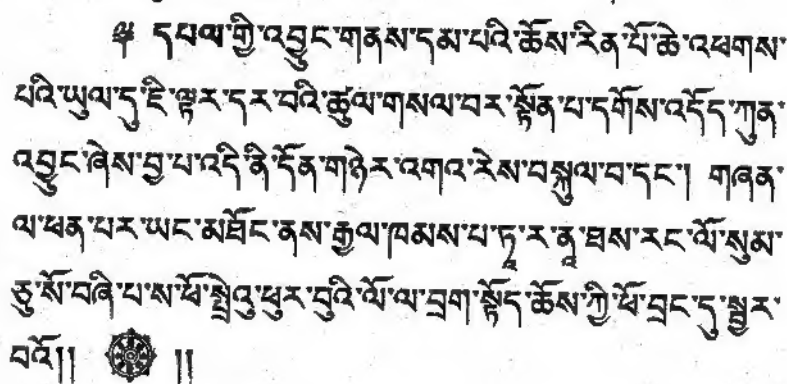 ༄ དཔལ་གྱི་འབྱུང་གནས་དམ་པའི་ཆོས་རིན་པོ་ཆེ་འཕགས་
པའི་ཡུལ་དུ་ཇི་ལྟར་དར་བའི་ཚུལ་གསལ་བར་སྟོན་པ་དགོས་འདོད་ཀུན་
འབྱུང་ཞེས་བྱ་པ་འདི་ནི་དོན་གཉེར་འགའ་རེས་བསྐུལ་བ་དང་། གཞན་
ལ་ཕན་པར་ཡང་མཐོང་ནས་རྒྱལ་ཁམས་པ་ཏཱ་ར་ནཱ་ཐས་རང་ལོ་སུམ་
ཅུ་སོ་བཞི་པ་ས་ཕོ་སྤྲེའུ་ཕུར་བུའི་ལོ་ལ་བྲག་སྟོད་ཆོས་ཀྱི་ཕོ་བྲང་དུ་སྦྱར་
བའོ།། ༎